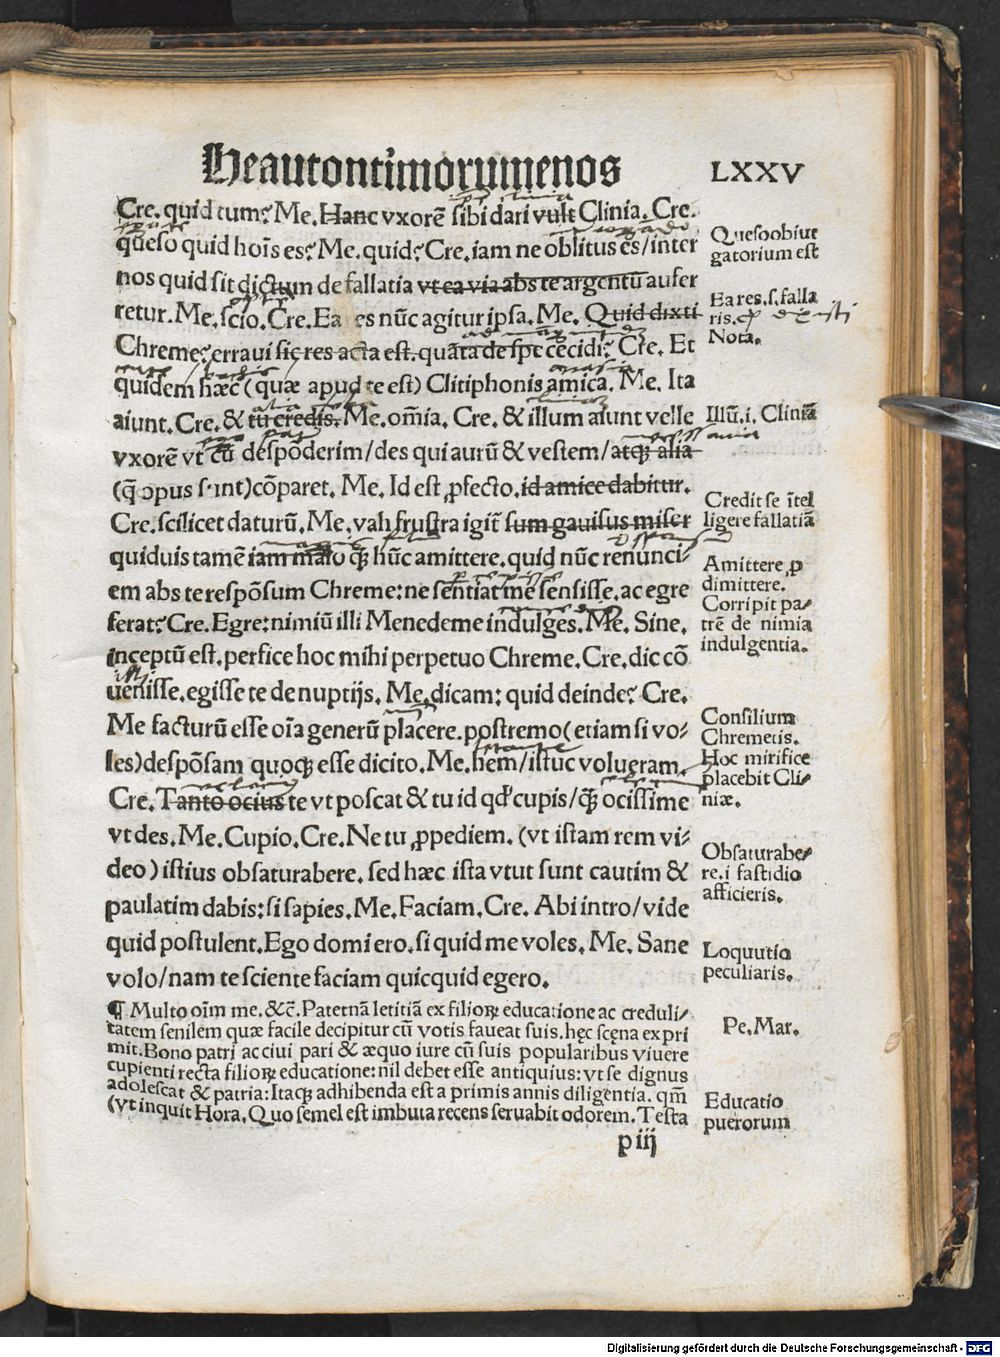 Heautontimorumenos LXXV
Cre. quid tum? Me. Hanc vxorē sibi dari vult Clinia. Cre.
queso quid hoīs es? Me. quid? Cre. iam ne oblitus es/inter
nos quid sit dictum de fallatia vt ea via abs te argentū aufer
retur. Me. scio. Cre. Ea es nūc agitur ipsa. Me. Quid dixti
Chreme? erraui sic res acta est. quāta de spe cecidi? Cre. Et
quidem hæc (quæ apud te est) Clitiphonis amica. Me. Ita
aiunt. Cre. & tu credis. Me. om̄ia. Cre. & illum aiunt velle
vxorē vt cū despōderim/des qui aurū & vestem/atqꝫ alia
(q̄ opus sint) cōparet. Me. Id est ꝓfecto. id amice dabitur.
Cre. scilicet daturū. Me. vah frustra igit̄ sum gauisus miser
quiduis tamē iam malo qꝫ hūc amittere. quid nūc renunci⸗
em abs te respōsum Chreme: ne sentiat me sensisse. ac egre
ferat? Cre. Egre: nimiū illi Menedeme indulges. Me. Sine.
inceptū est. perfice hoc mihi perpetuo Chreme. Cre. dic cō
uenisse. egisse te de nuptijs. Me. dicam: quid deinde? Cre.
Me facturū esse oīa generū placere. postremo (etiam si vo⸗
les) despōsam quoqꝫ esse dicito. Me. hem/istuc volueram.
Cre. Tanto ocius te vt poscat & tu id qd' cupis/qꝫ ocissime
vt des. Me. Cupio. Cre. Ne tu ꝓpediem. (vt istam rem vi⸗
deo) istius obsaturabere. sed hæc ista vtut sunt cautim &
paulatim dabis: si sapies. Me. Faciam. Cre. Abi intro/vide
quid postulent. Ego domi ero. si quid me voles. Me. Sane
volo/nam te sciente faciam quicquid egero.
¶ Multo oīm me. &c̄. Paternā letitiā ex filioꝝ educatione ac creduli⸗
tatem senilem quæ facile decipitur cū votis faueat suis. hęc scęna expri
mit. Bono patri ac ciui pari & æquo iure cū suis popularibus viuere
cupienti recta filioꝝ educatione: nil debet esse antiquius: vt se dignus
adolescat & patria: Itaqꝫ adhibenda est a primis annis diligentia. qm̄
(vt inquit Hora. Quo semel est imbuta recens seruabit odorem. Testa
p iij
Queso obiur
gatorium est
Ea res. s. falla
ris.
Nota.
Illū. i. Cliniā
Credit se ītel
ligere fallatiā
Amittere ꝓ
dimittere.
Corripit pa⸗
trē de nimia
indulgentia.
Consilium
Chremetis.
Hoc mirifice
placebit Cli⸗
niæ.
Obsaturabe⸗
re. i fastidio
afficieris.
Loquutio
peculiaris.
Pe. Mar.
Educatio
puerorum
Digitalisierung gefördert durch die Deutsche Forschungsgemeinschaft - DFG